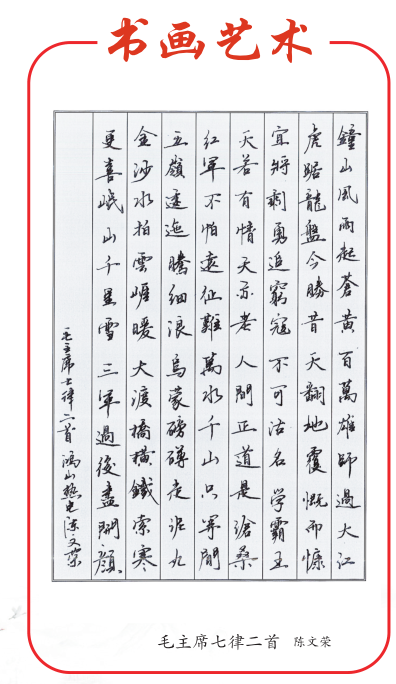 书画艺术
鐘山風雨起蒼黄百萬雄師過大江
虎踞龍盤今勝昔天翻地覆慨而慷
宜將剩勇追窮寇不可沽名學霸王
天若有情天亦老人間正道是滄桑
紅軍不怕遠征難萬水千山只等閒
五嶺逶迤騰細浪烏蒙磅礴走泥丸
金沙水拍雲崖暖大渡橋横鐵索寒
更喜岷山千里雪三軍過後盡開顔
毛主席七律二首鴻山熱电陈文荣
毛主席七律二首 陈文荣